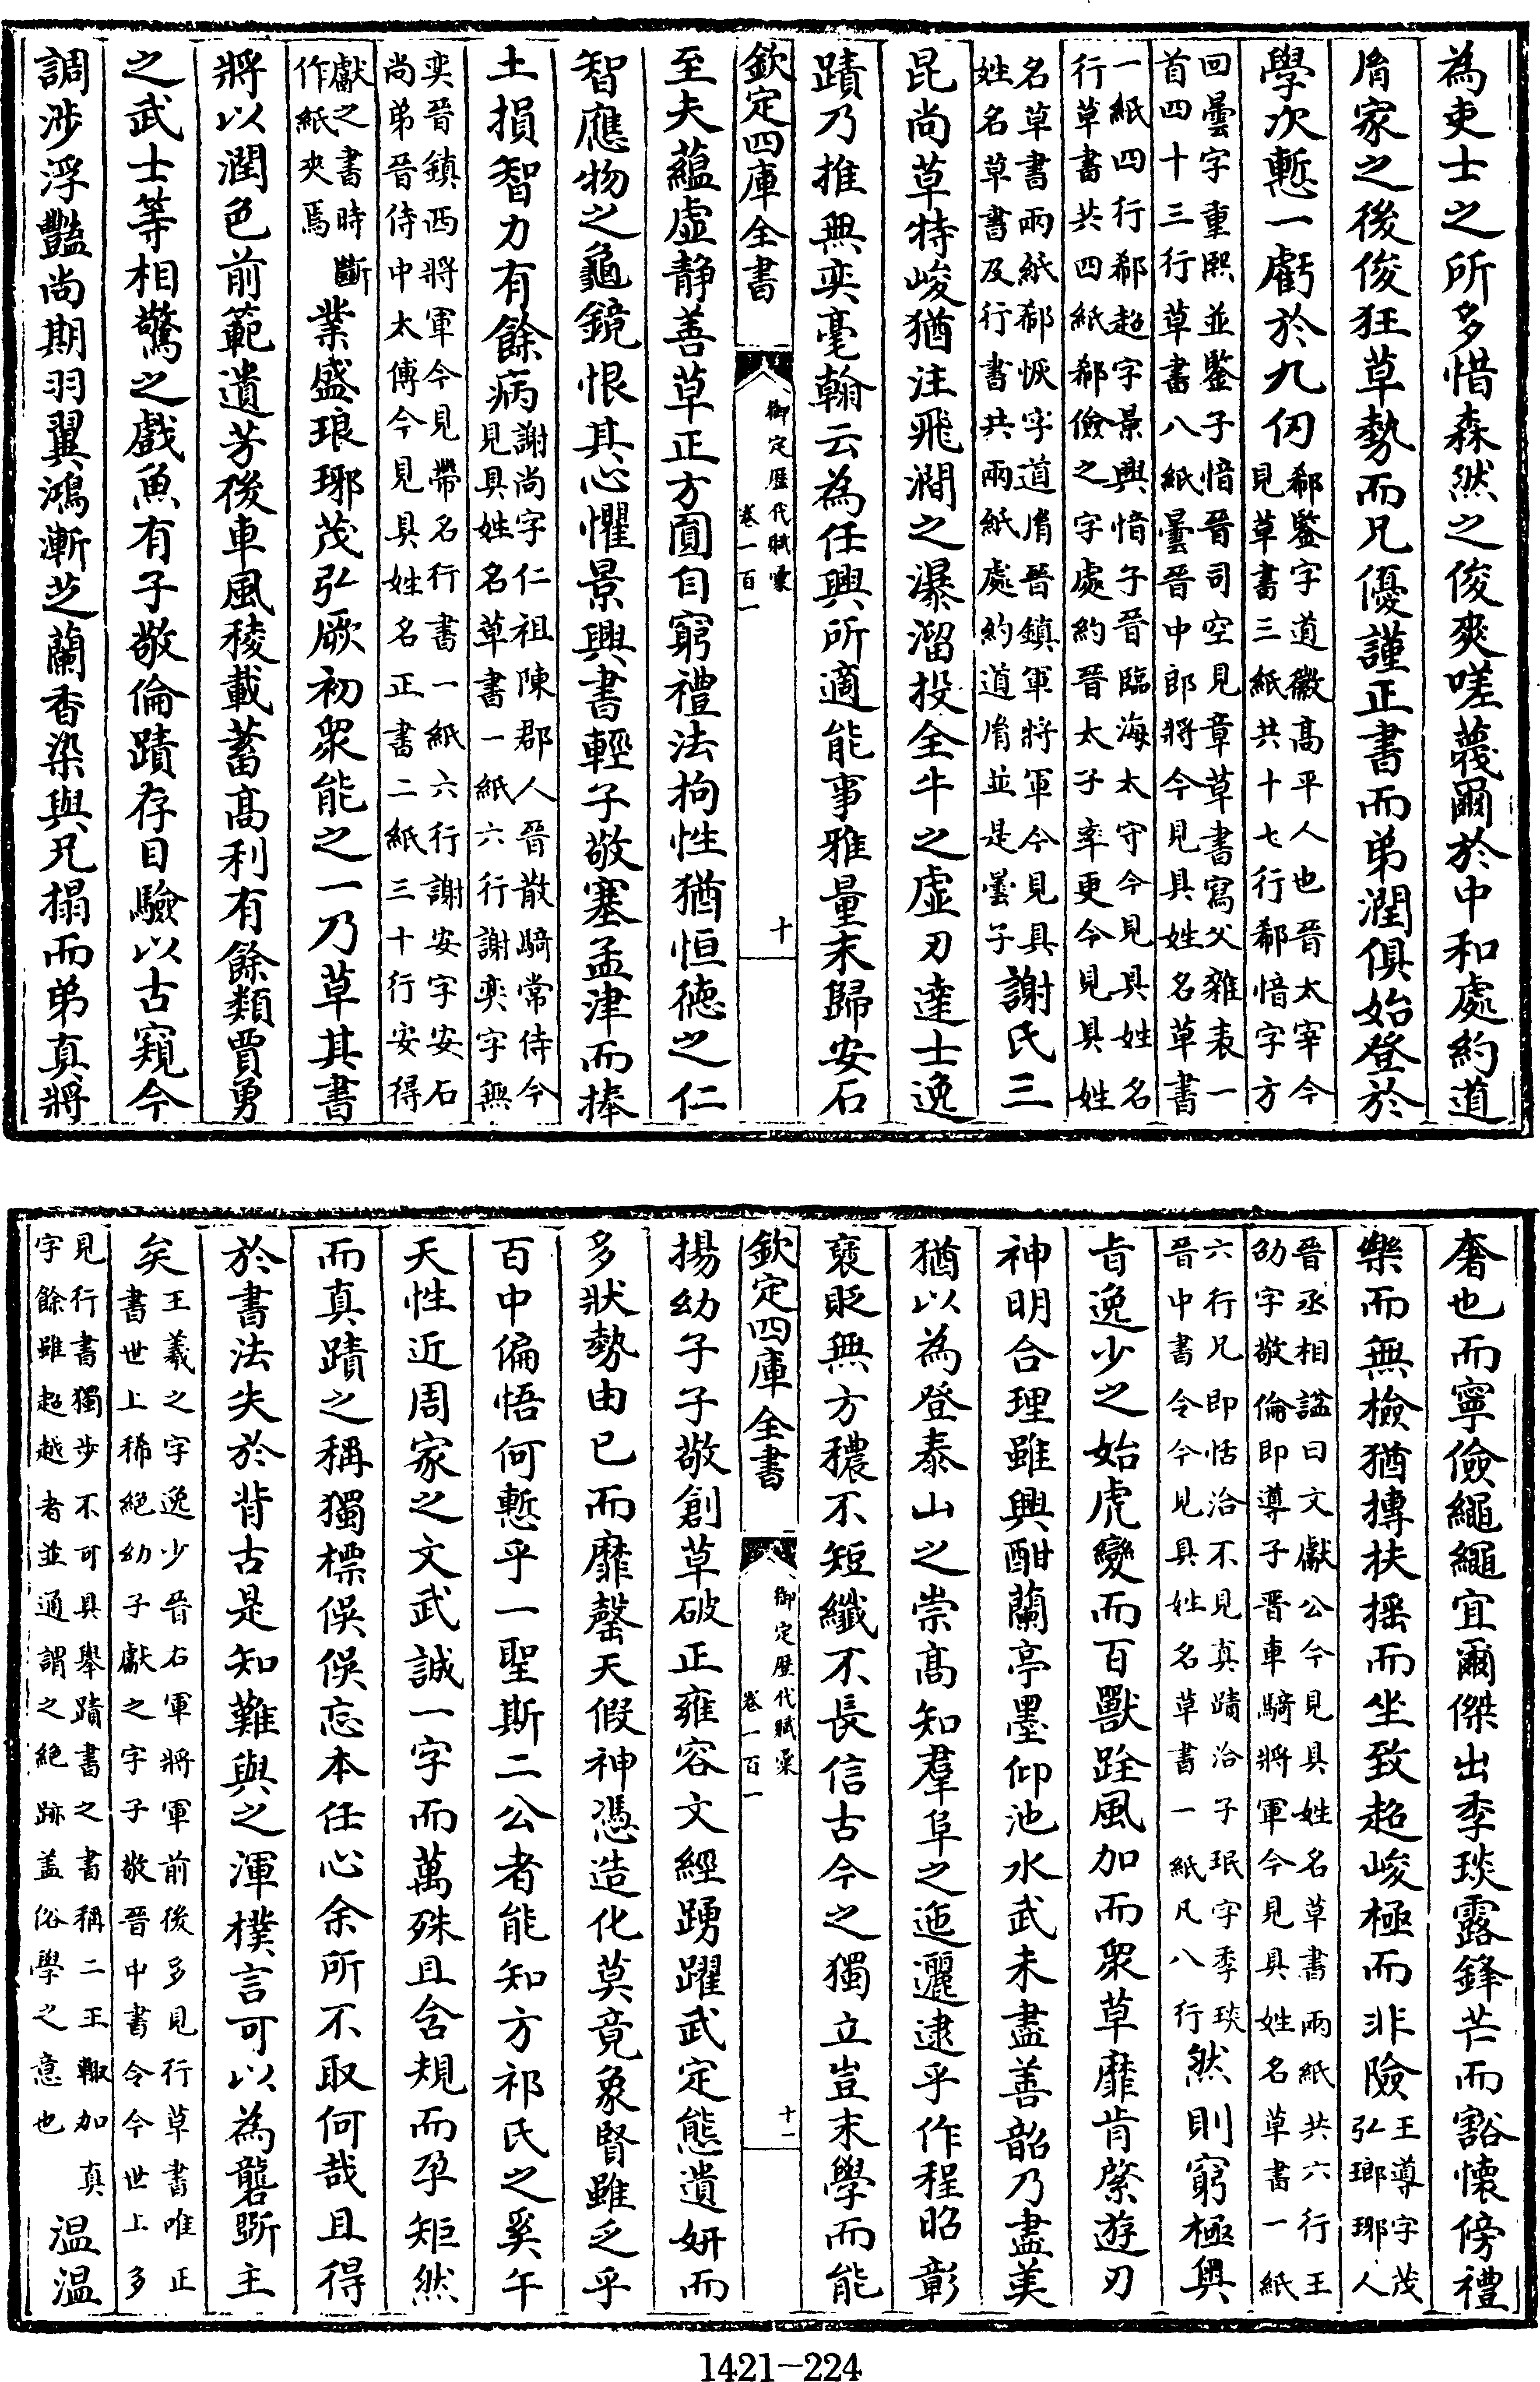 為吏士之所多惜森然之俊爽嗟蔑爾於中和處約道
胤家之後俊狂草勢而兄優謹正書而弟潤俱始登於
學次慙一虧於九仞郗鑒字道徽高平人也晉太宰今
見草書三紙共十七行郗愔字方
回曇字重熙並鑒子愔晉司空見章草書寫父雜表一
首四十三行草書八紙曇晉中郎將今見具姓名草書
一紙四行郗超字景興愔子晉臨海太守今見具姓名
行草書共四紙郗儉之字處約晉太子率更今見具姓
名草書兩紙郗恢字道胤晉鎮軍將軍今見具
姓名草書及行書共兩紙處約道胤並是曇子謝氏三
昆尚草特峻猶注飛澗之瀑溜投全牛之虛刃達士逸
蹟乃推無奕毫翰云為任興所適能事雅量末歸安石
欽定四庫全書
御定歷代賦彙
卷一百一
十
至夫蘊虛靜善草正方圓自窮禮法拘性猶恒德之仁
智應物之龜鏡恨其心懼景興書輕子敬塞孟津而捧
土損智力有餘病謝尚字仁祖陳郡人晉散騎常侍今
見具姓名草書一紙六行謝奕字無
奕晉鎮西將軍今見帶名行書一紙六行謝安字安石
尚弟晉侍中太傅今見具姓名正書二紙三十行安得
獻之書時斷
作紙夾焉業盛琅琊茂弘厥初衆能之一乃草其書
將以潤色前範遺芳後車風稜載蓄高利有餘類賈勇
之武士等相驚之戲魚有子敬倫蹟存目驗以古窺今
調涉浮豔尚期羽翼鴻漸芝蘭香染與兄搨而弟真將
奢也而寧儉繩繩宜爾傑出季琰露鋒芒而豁懷傍禮
樂而無檢猶摶扶搖而坐致超峻極而非險王導字茂
弘瑯琊人
晉丞相諡曰文獻公今見具姓名草書兩紙共六行王
劭字敬倫即導子晉車騎將軍今見具姓名草書一紙
六行兄即恬洽不見真蹟洽子珉字季琰
晉中書令今見具姓名草書一紙凡八行然則窮極奥
旨逸少之始虎變而百獸跧風加而衆草靡肯綮遊刃
神明合理雖興酣蘭亭墨仰池水武未盡善韶乃盡美
猶以為登泰山之崇高知羣阜之迤邐逮乎作程昭彰
褒貶無方穠不短纖不長信古今之獨立豈末學而能
欽定四庫全書
御定歷代賦彙
卷一百一
十一
揚幼子子敬創草破正雍容文經踴躍武定態遺妍而
多狀勢由已而靡罄天假神憑造化莫竟象賢雖乏乎
百中偏悟何慙乎一聖斯二公者能知方祁氏之奚午
天性近周家之文武誠一字而萬殊且含規而孕矩然
而真蹟之稱獨標俁俁忘本任心余所不取何哉且得
於書法失於背古是知難與之渾樸言可以為龔斲主
矣王羲之字逸少晉右軍將軍前後多見行草書唯正
書世上稀絕幼子獻之字子敬晉中書令今世上多
見行書獨步不可具舉蹟書之書稱二王輙加真
字餘雖超越者並通謂之絕跡盖俗學之意也温温
1421-224